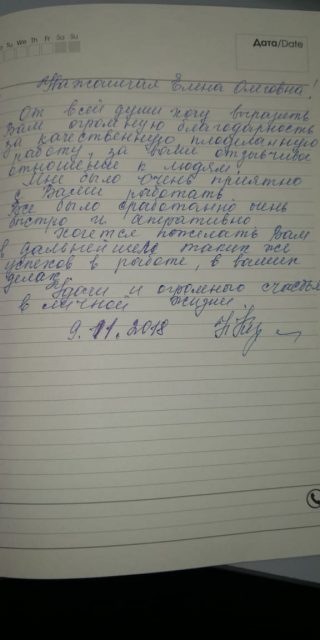 Tu We Th Fr Sa Su
Дата/Date
Уважаемая Елена Олеговна!
От всей души хочу выразить
Вам огромную благодарность
за качественную проделанную
работу, за ваше отзывчивое
отношение к людям!
Мне было очень приятно
с Вами работать
Все было сработанно очень
быстро и аперативно
Хочется пожелать Вам
в дальнейшем таких же
успехов в работе, в ваших
делах.
Удачи и огромного счастья
в личной жизни.
9.11.2018